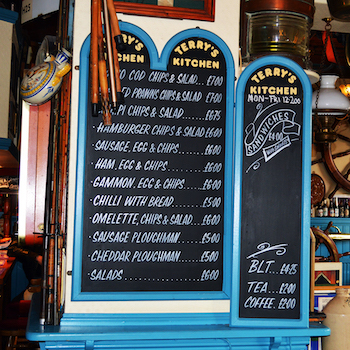 TERRY'S
KITCHEN
COD CHIPS & SALAD... £7.00
PRAWNS CHIPS & SALAD £7.00
CHIPS & SALAD
HAMBURGER CHIPS & SALAD £6.00
SAUSAGE, EGG & CHIPS. £6.00
HAM, EGG & CHIPS £6.00
GAMMON, EGG & CHIPS £6.00
CHILLI WITH BREAD £5.00
OMELETTE, CHIPS & SALAD £6.00
SAUSAGE PLOUGHMAN £5.00
CHEDDAR PLOUGHMAN £5.00
SALADS £6.00
TERRY'S
KITCHEN
TERRY'S
KITCHEN
MON-FRI 12-2.00
SANDWICHES
£4.00
BLT £4.25
TEA £2.00
COFFEE £2.00